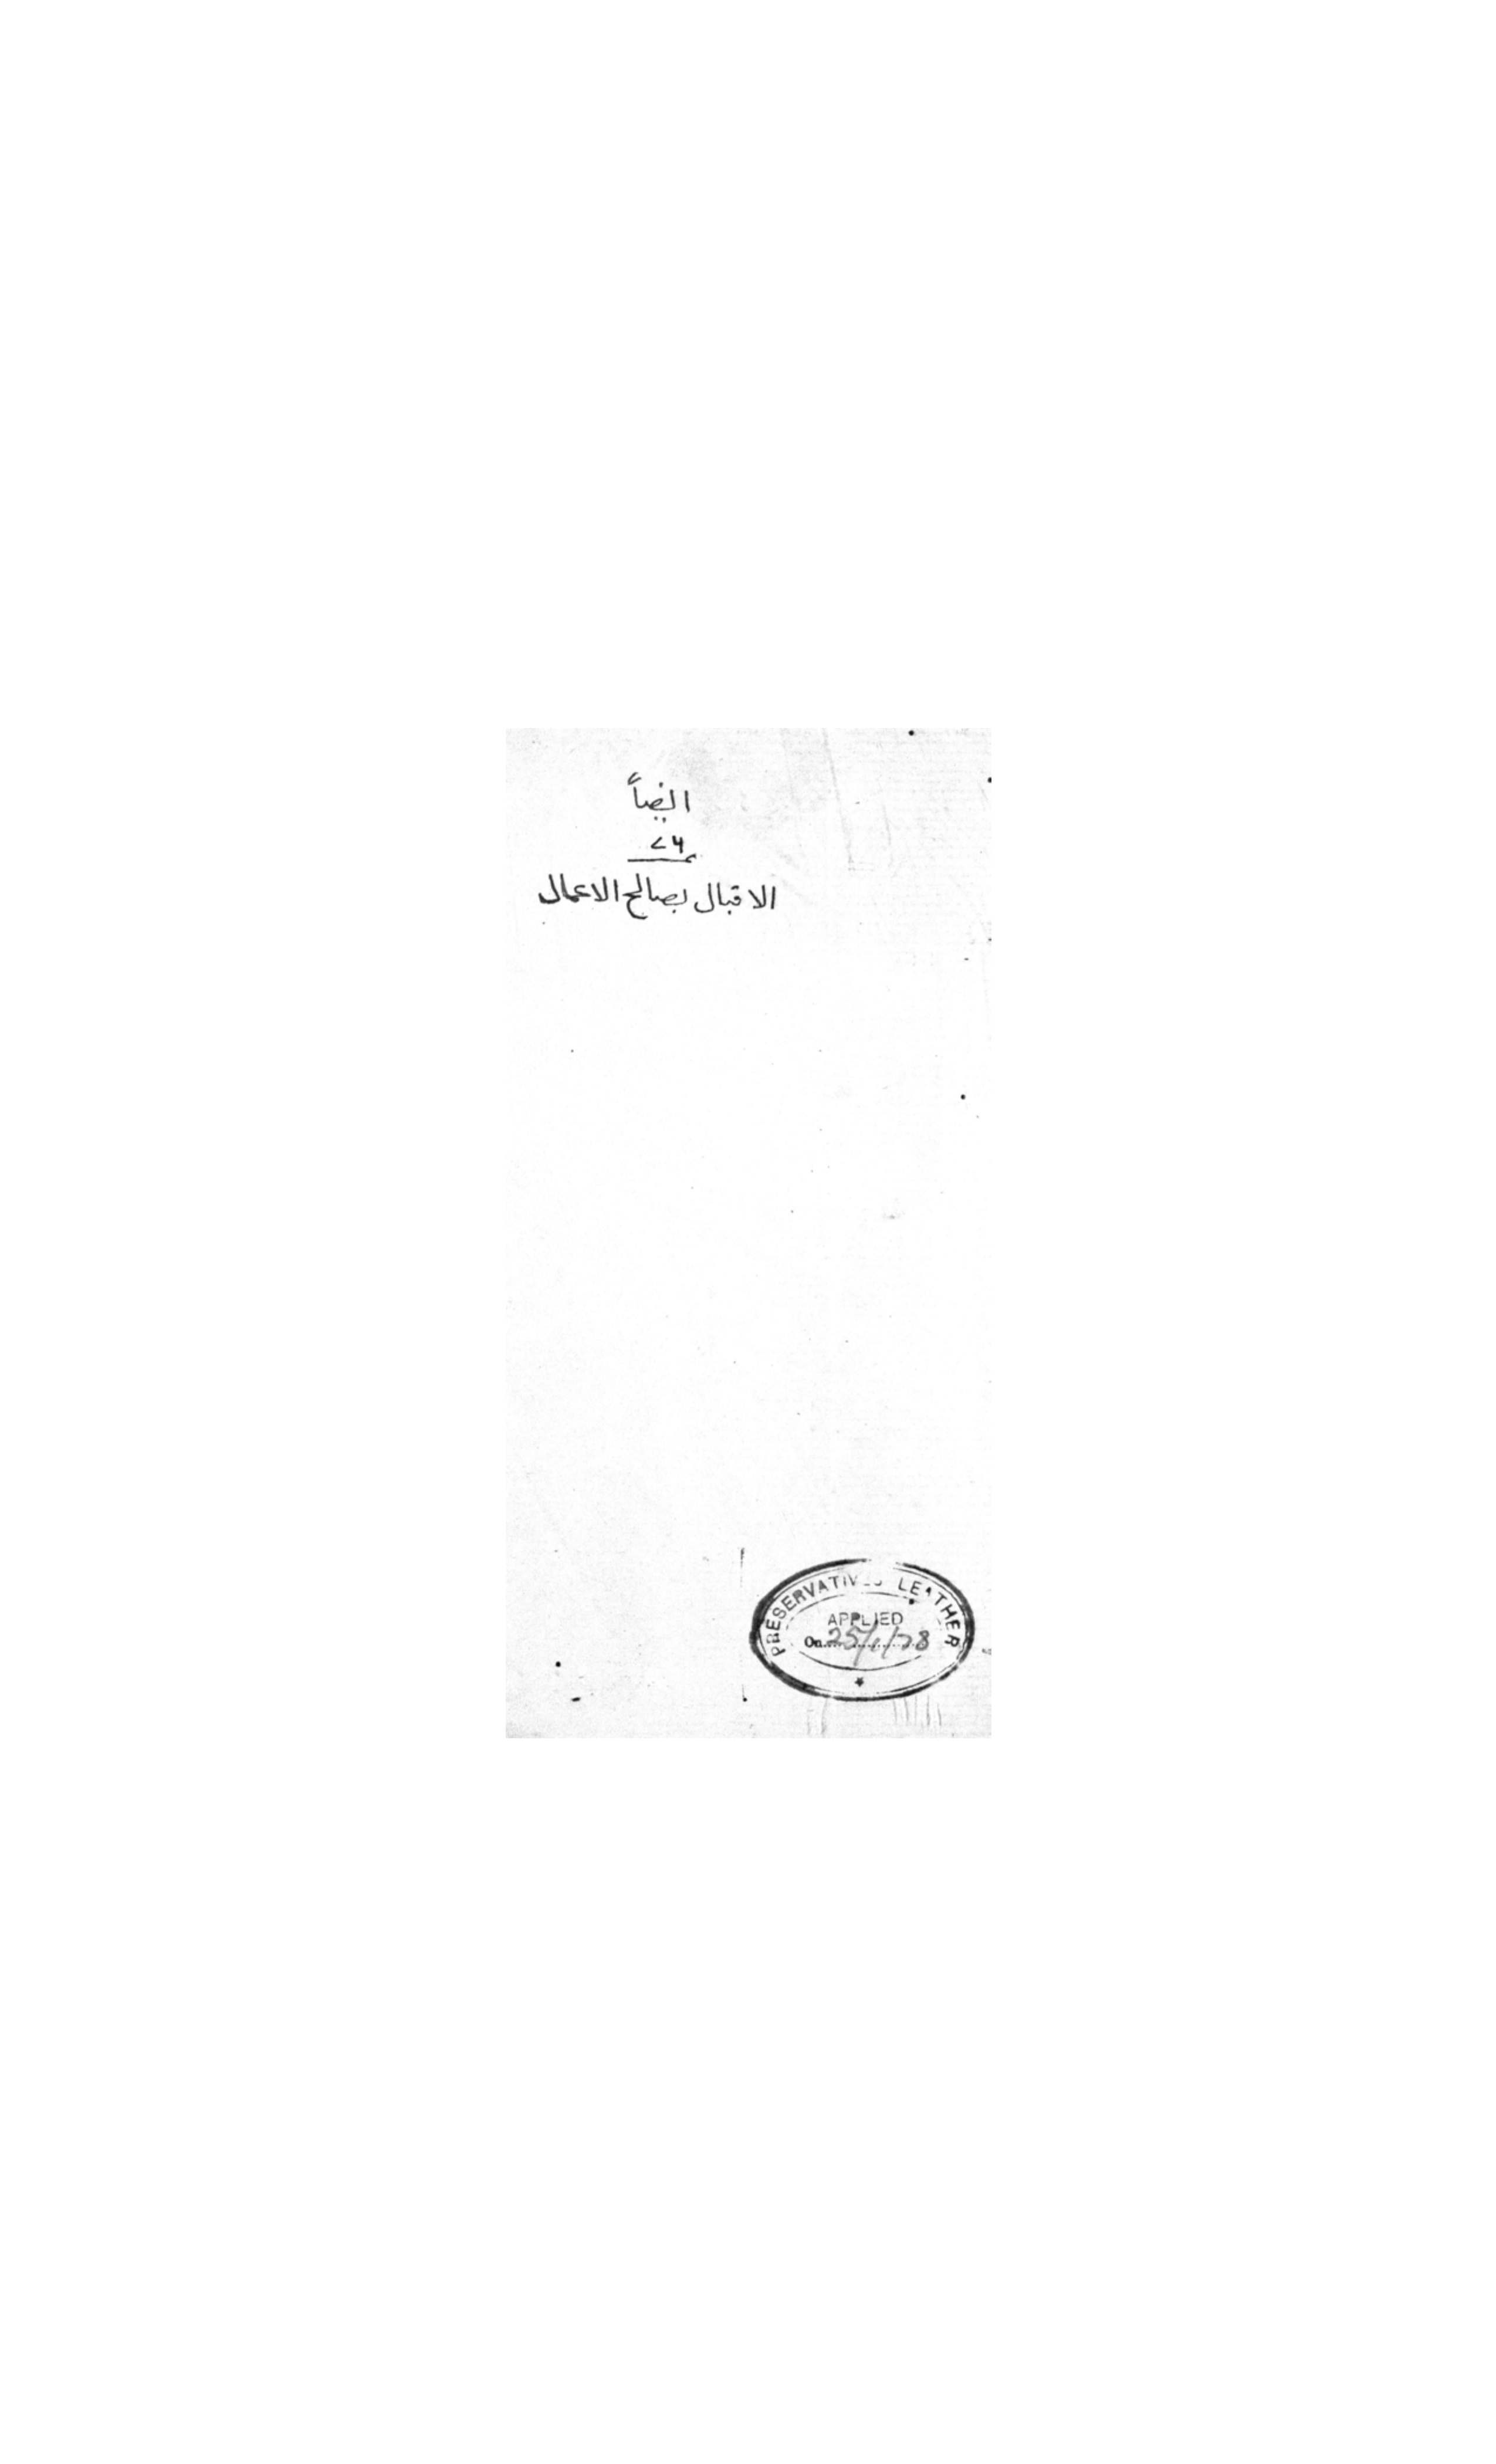 ايضاً
٢٤
الاقبال بصالح الاعمال
PRESERVATIVES LEATHER
APPLIED
On 25/1/78